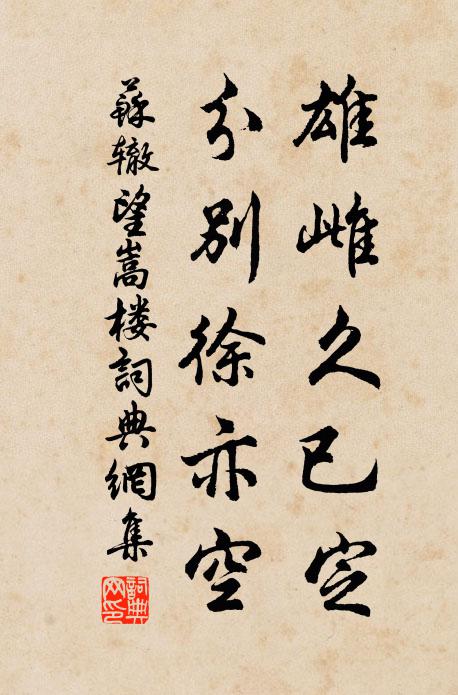 雄雌久已定
分别徐亦空
蘇辙望嵩楼詞典網集
詞典
网印